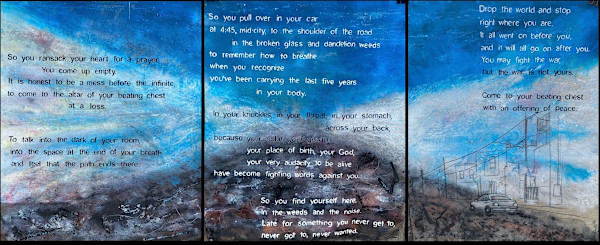 So you ransack your heart for a prayer.
You come up empty.
It is honest to be a mess before the infinite,
to come to the altar of your beating chest
at a loss.
To talk into the dark of your room,
into the space at the end of your breath
and feel that the path ends there.
So you pull over in your car
at 4:45, mid-city, to the shoulder of the road
in the broken glass and dandelion weeds
to remember how to breathe
when you recognize
you've been carrying the last five years
in your body.
In your knuckles, in your throat, in your stomach,
across your back,
because your
your place of birth, your God,
your very audacity to be alive
have become fighting words against you.
So you find yourself here
in the weeds and the noise.
Late for something you never get to,
never got to, never wanted.
Drop the world and stop
right where you are.
It all went on before you,
and it will all go on after you.
You may fight the war,
but the war is not yours.
Come to your beating chest
with an offering of peace.